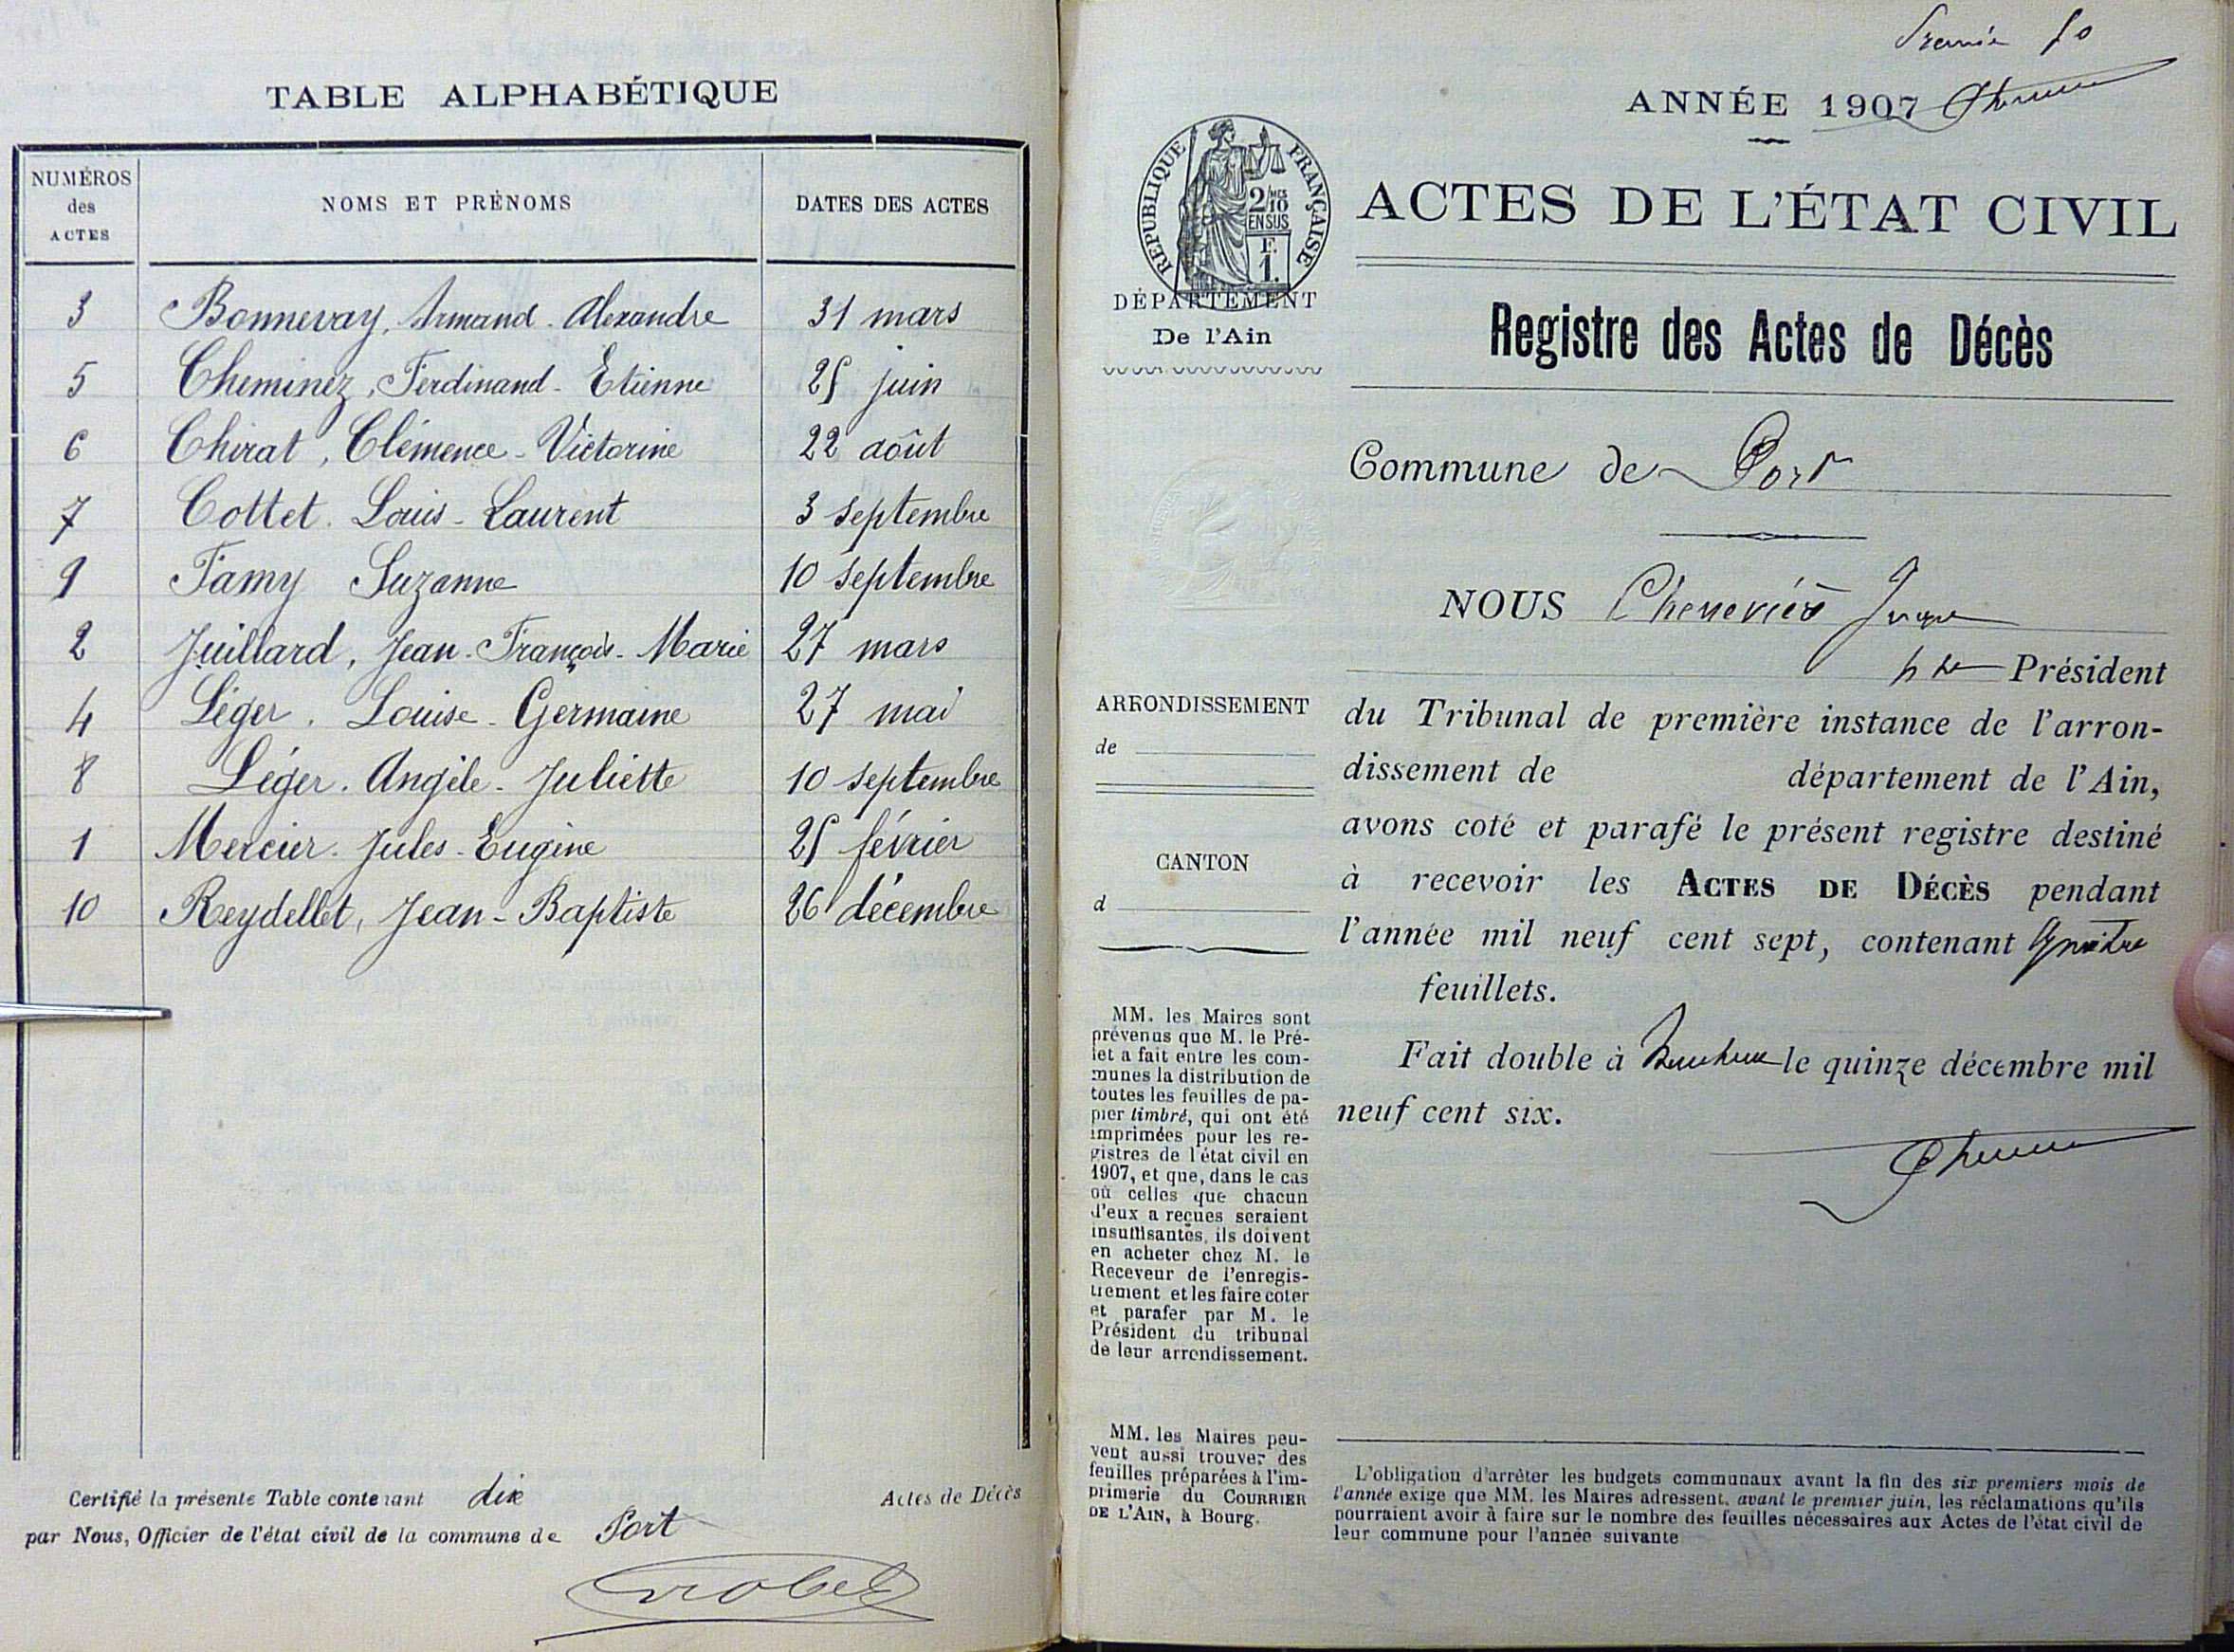 TABLE ALPHABÉTIQUE
NUMÉROS des ACTES NOMS ET PRÉNOMS DATES DES ACTES
3 Bonnevay, Armand-Alexandre 31 mars
5 Cheminez, Ferdinand-Etienne 25 juin
6 Chirat, Clémence-Victorine 22 août
7 Cottet. Louis-Laurent 3 septembre
9 Famy Suzanne 10 septembre
2 Juillard, Jean-François-Marie 27 mars
4 Léger. Louise-Germaine 27 mai
8 Léger. Angèle-Juliette 10 septembre
1 Mercier. Jules-Eugène 25 février
10 Reydellet, Jean-Baptiste 26 décembre
Certifié la présente Table contenant dix Actes de Décès
par Nous, Officier de l'état civil de la commune de Port
ANNÉE 1907
RÉPUBLIQUE FRANÇAISE
2/MES 10
EN SUS
F.
1.
ACTES DE L'ÉTAT CIVIL
DÉPARTEMENT
De l'Ain
Registre des Actes de Décès
Commune de Port
NOUS
Président
du Tribunal de première instance de l'arron-
dissement de département de l'Ain,
avons coté et parafé le présent registre destiné
à recevoir les ACTES DE DÉCÈS pendant
l'année mil neuf cent sept, contenant quatre
feuillets.
Fait double à le quinze décembre mil
neuf cent six.
ARRONDISSEMENT
de
CANTON
d
MM. les Maires sont
prévenus que M. le Pré-
fet a fait entre les com-
munes la distribution de
toutes les feuilles de pa-
pier timbré, qui ont été
imprimées pour les re-
gistres de l'état civil en
1907, et que, dans le cas
où celles que chacun
d'eux a reçues seraient
insuffisantes, ils doivent
en acheter chez M. le
Receveur de l'enregis-
trement et les faire coter
et parafer par M. le
Président du tribunal
de leur arrondissement.
MM. les Maires peu-
vent aussi trouver des
feuilles préparées à l'im-
primerie du COURRIER
DE L'AIN, à Bourg.
L'obligation d'arrêter les budgets communaux avant la fin des six premiers mois de
l'année exige que MM. les Maires adressent, avant le premier juin, les réclamations qu'ils
pourraient avoir à faire sur le nombre des feuilles nécessaires aux Actes de l'état civil de
leur commune pour l'année suivante